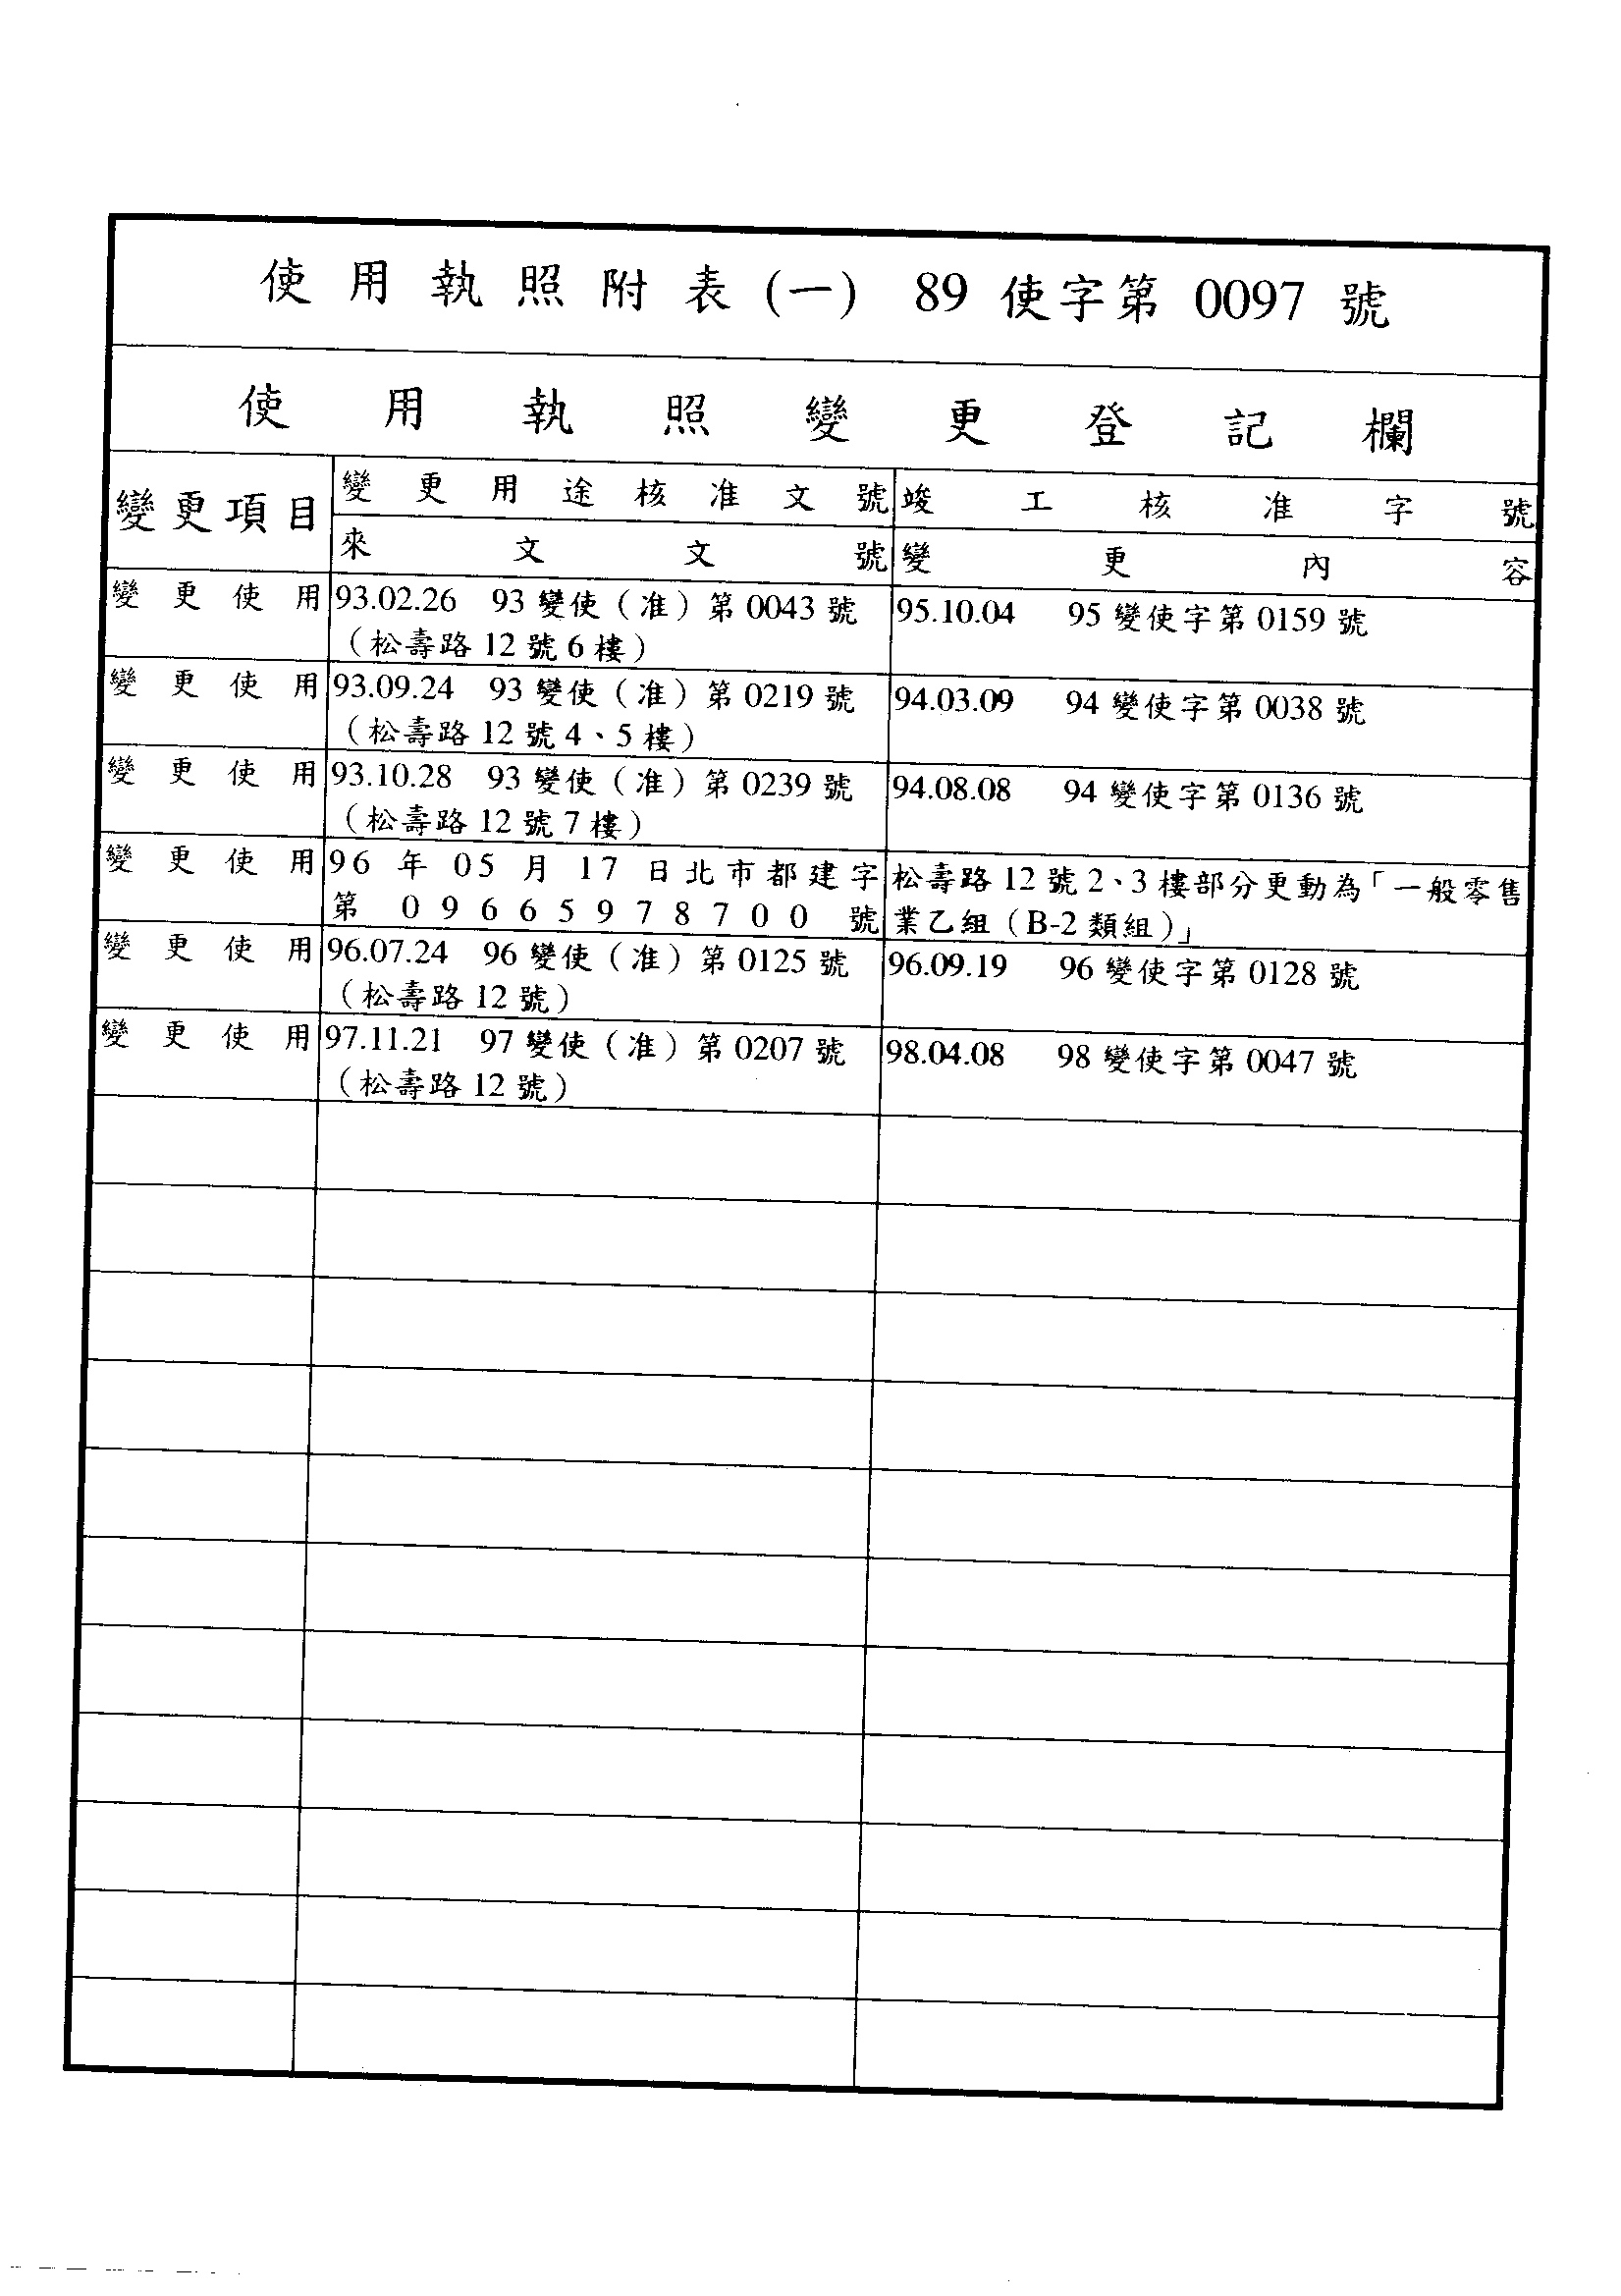 使用執照附表(一) 89 使字第 0097 號
使用執照變更登記欄
變更項目
變更用途核准文號 竣工核准字號
來文文號 變更內容
變更使用 93.02.26 93 變使（准）第 0043 號 95.10.04 95 變使字第 0159 號
（松壽路 12 號 6 樓）
變更使用 93.09.24 93 變使（准）第 0219 號 94.03.09 94 變使字第 0038 號
（松壽路 12 號 4、5 樓）
變更使用 93.10.28 93 變使（准）第 0239 號 94.08.08 94 變使字第 0136 號
（松壽路 12 號 7 樓）
變更使用 96 年 05 月 17 日北市都建字 松壽路 12 號 2、3 樓部分更動為「一般零售
第 09665978700 號 業乙組（B-2 類組）」
變更使用 96.07.24 96 變使（准）第 0125 號 96.09.19 96 變使字第 0128 號
（松壽路 12 號）
變更使用 97.11.21 97 變使（准）第 0207 號 98.04.08 98 變使字第 0047 號
（松壽路 12 號）